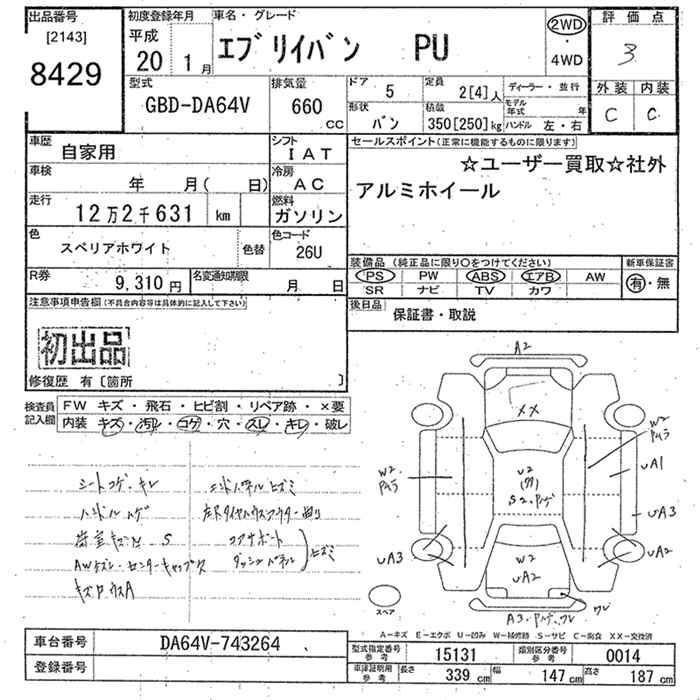 出品番号
[2143]
8429
初度登録年月
平成
20 1月
車名・グレード
エブリイバン PU
2WD
・
4WD
評価点
3
外装 内装
C C
型式
GBD-DA64V
排気量
660
cc
ドア 5
形状 バン
定員 2[4]人
積載 350[250]kg
ディーラー・並行
モデル年式 年
ハンドル 左・右
車歴
自家用
シフト
IAT
車検
年 月( 日)
冷房
AC
走行
12万2千631 km
燃料
ガソリン
色
スペリアホワイト
色替
色コード
26U
R券
9,310円
名変通知期限
月 日
セールスポイント(正常に機能するものに限ります)
☆ユーザー買取☆社外
アルミホイール
装備品(純正品に限り○をつけてください)
PS PW ABS エアB AW
SR ナビ TV カワ
新車保証書
有・無
後日品
保証書・取説
注意事項申告欄(不具合内容等は具体的に記入して下さい)
初出品
修復歴 有〔箇所 〕
検査員
記入欄
FW キズ・飛石・ヒビ割・リペア跡・×要
内装 キズ・汚れ・コゲ・穴・スレ・キレ・破レ
シートコゲ・キレ
ハンドルハゲ
荷室キズM S
AWキズレ・センターキャップ欠
エンドパネルヒズミ
コアサポート
ダッシュパネル
ヒズミ
A2
XX
W2
UA1
UA3
UA2
UA3
W2
U2
S2
W2
UA2
ワレ
スペア
A-キズ E-エクボ U-凹み W-補修跡 S-サビ C-腐食 XX-交換済
車台番号
DA64V-743264
登録番号
型式指定番号
参考
15131
類別区分番号
参考
0014
車庫証明用
参考
長さ 339cm 幅 147cm 高さ 187cm